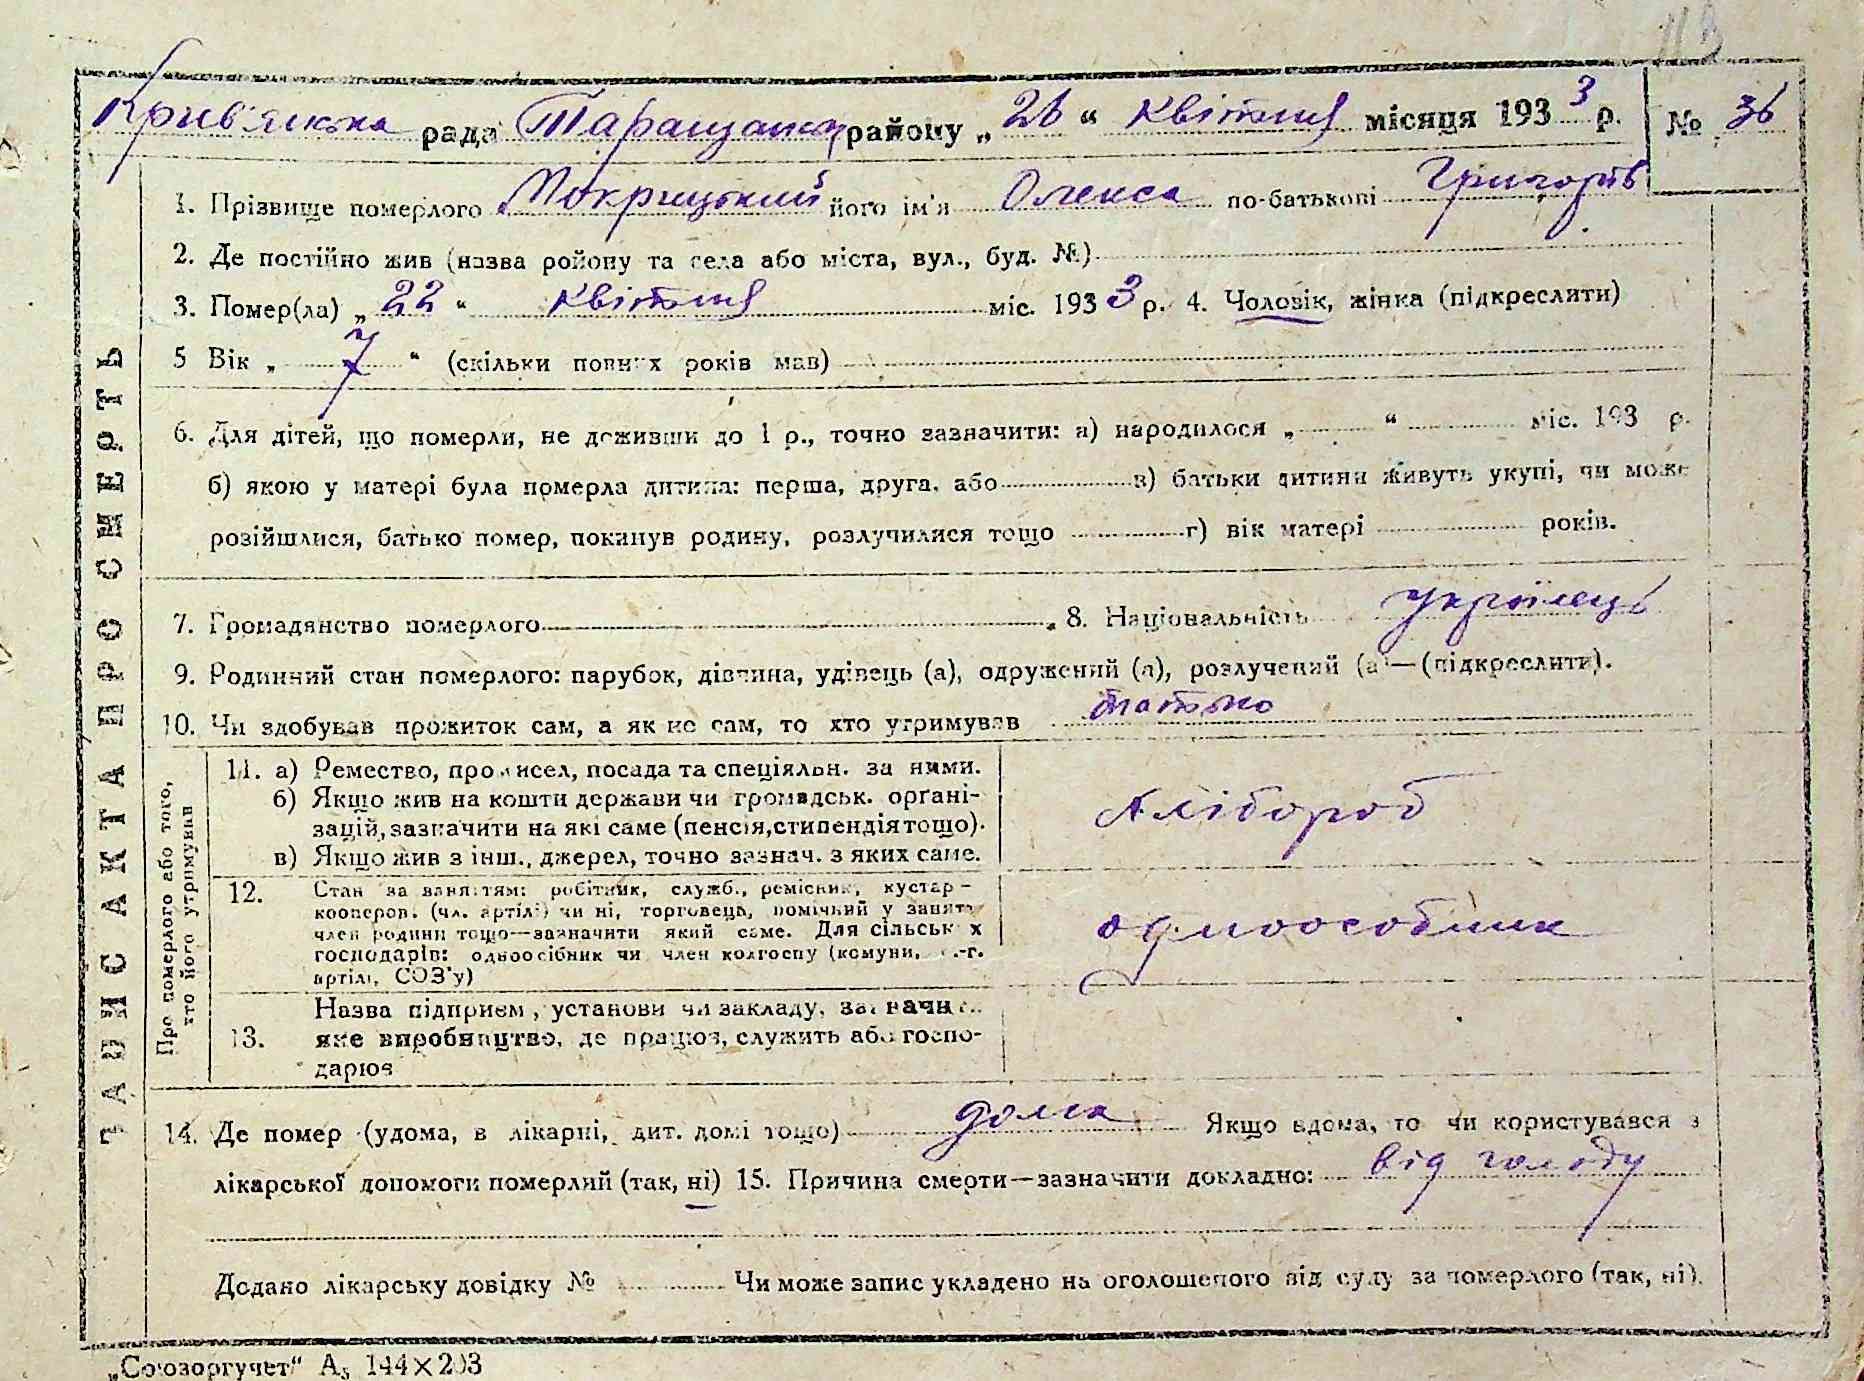 Крив'янська рада Таращанськ району „ 26 “ Квітня місяця 193 3 р. № 36
1. Прізвище померлого Мокрицький його ім'я Олекса по-батькові Григорів
2. Де постійно жив (назва ройону та села або міста, вул., буд. №)
3. Помер(ла) „ 22 “ квітня міс. 193 3 р. 4. Чоловік, жінка (підкреслити)
5 Вік „ 7 “ (скільки повних років мав)
6. Для дітей, що померли, не доживши до 1 р., точно зазначити: а) народилося „ “ міс. 193 р.
б) якою у матері була померла дитина: перша, друга, або в) батьки дитини живуть укупі, чи може
розійшлися, батько помер, покинув родину, розлучилися тощо г) вік матері років.
7. Громадянство померлого 8. Національність українець
9. Родинний стан померлого: парубок, дівчина, удівець (а), одружений (а), розлучений (а)—(підкреслити).
10. Чи здобував прожиток сам, а як не сам, то хто утримував батько
ЗАПИС АКТА ПРО СМЕРТЬ
Про померлого або того,
хто його утримував
11. а) Ремество, промисел, посада та спеціяльн. за ними.
б) Якщо жив на кошти держави чи громадськ. органі-
зацій, зазначити на які саме (пенсія, стипендія тощо).
в) Якщо жив з інш., джерел, точно зазнач. з яких саме.
хлібороб
12. Стан за заняттям: робітник, служб., ремісник, кустар-
кооперов. (чл. артілі) чи ні, торговець, помічний у занят.
член родини тощо—зазначити який саме. Для сільськ х
господарів: одноосібник чи член колгоспу (комуни, с.-г.
артілі, СОЗ'у)
одноособник
13. Назва підприєм, установи чи закладу, зазначи..
яке виробництво, де працює, служить або госпо-
дарює
14. Де помер (удома, в лікарні, дит. домі тощо) дома Якщо вдома, то чи користувався з
лікарської допомоги померлий (так, ні) 15. Причина смерти—зазначити докладно: від голоду
Додано лікарську довідку № Чи може запис укладено на оголошеного від суду за померлого (так, ні).
„Союзоргучет“ А₅ 144×203